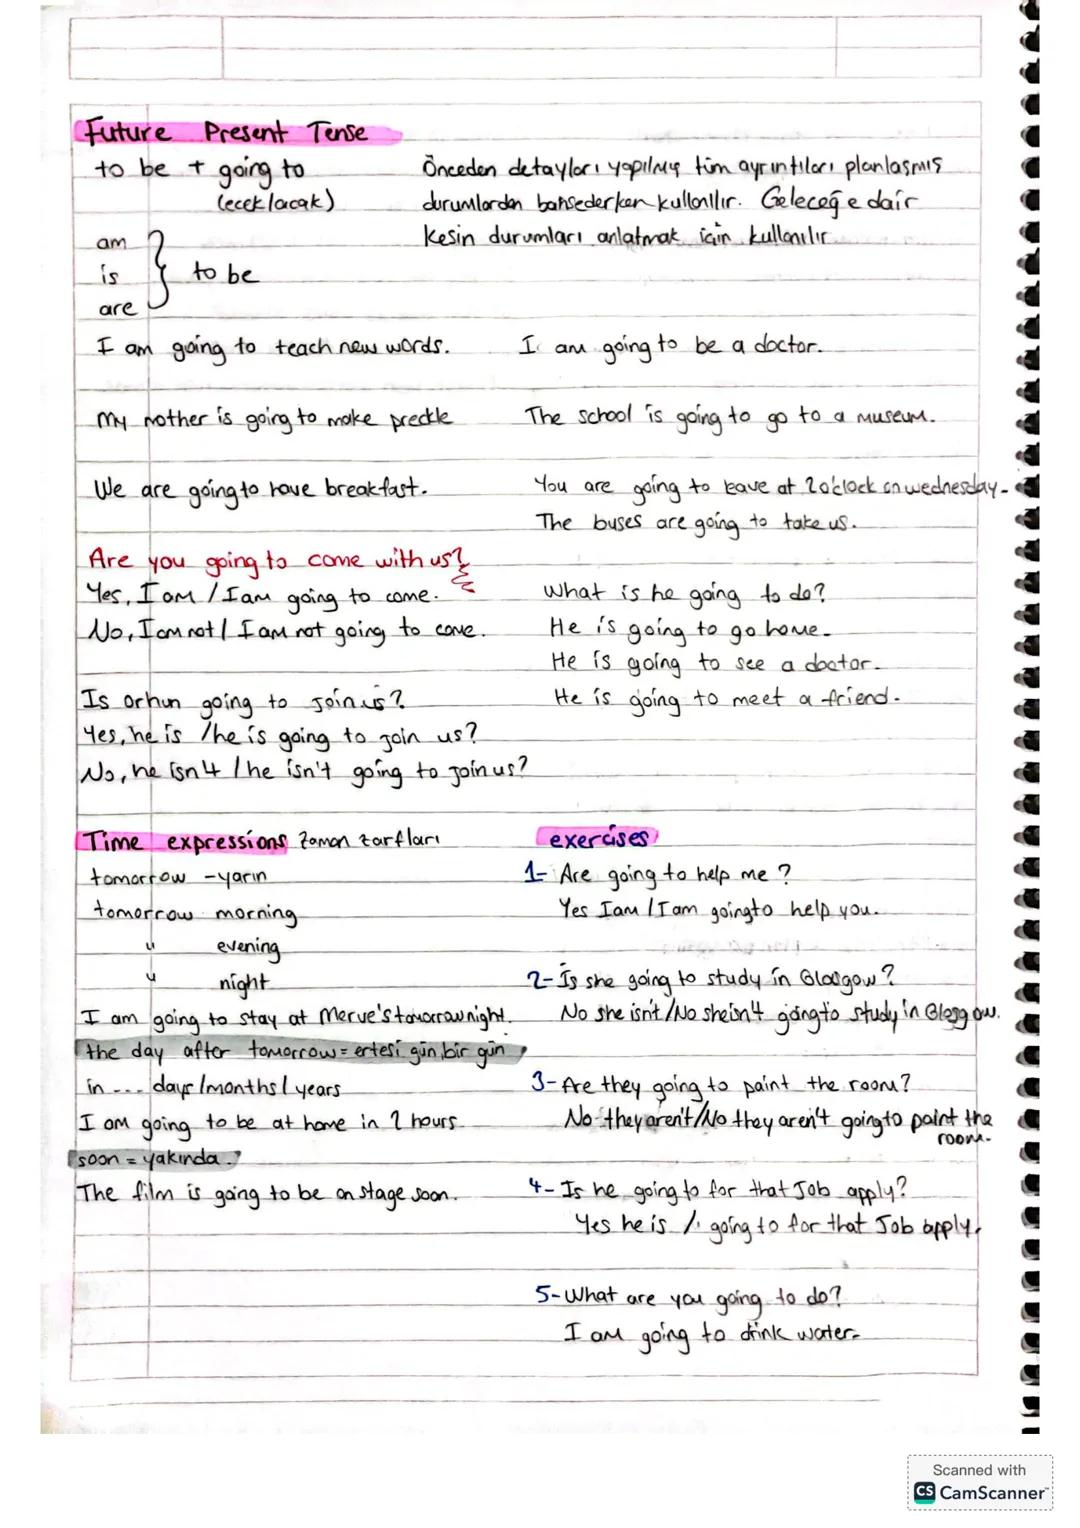 Future Present Tense
to be + going to
(ecek/acak)
Önceden detayları yapılmış tüm ayrıntıları planlaşmış
durumlardan bahsederken kullanılır. Geleceğe dair
kesin durumları anlatmak için kullanılır
am
is
are
to be
I am going to teach new words.
I am going to be a doctor.
My mother is going to make preckle
The school is going to go to a museum.
We are going to have breakfast.
You are going to leave at 2 o'clock on wednesday.
The buses are going to take us.
Are you going to come with us?
Yes, I am / I am going to come.
No, I am not / I am not going to come.
What is he going to do?
He is going to go home.
He is going to see a doctor.
He is going to meet a friend.
Is orhun going to join us?
Yes, he is / he is going to join us?
No, he isn't / he isn't going to join us?
Time expressions Zaman zarfları
tomorrow - yarın
tomorrow morning
" evening
" night
I am going to stay at Merve's tomorrow night.
the day after tomorrow = ertesi gün, bir gün
in ... days/months/years
I am going to be at home in 2 hours
soon = yakında.
The film is going to be on stage soon.
exercises
1- Are going to help me?
Yes I am / I am going to help you.
2- Is she going to study in Glasgow?
No she isn't / No she isn't going to study in Glasgow.
3- Are they going to paint the room?
No they aren't / No they aren't going to paint the
room.
4- Is he going to for that Job apply?
Yes he is / going to for that Job apply.
5- What are you going to do?
I am going to drink water.
Scanned with
CS CamScanner